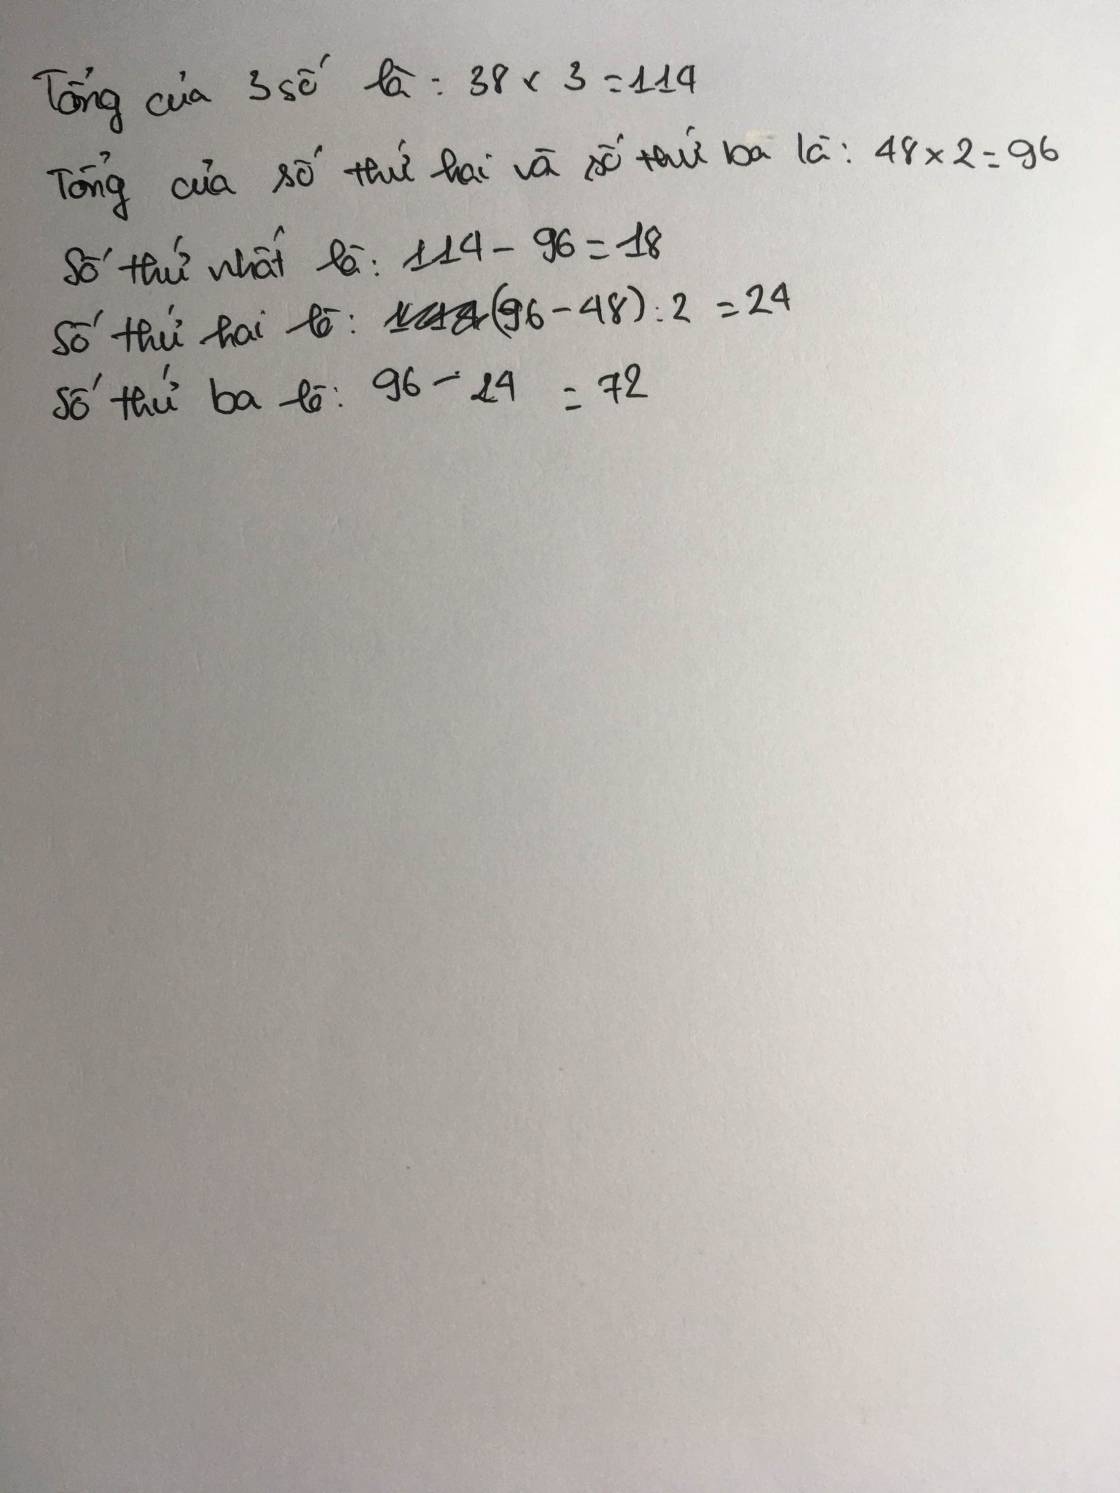 Tổng của 3 số là: 38 x 3 = 114
Tổng của số thứ hai và số thứ ba là: 48 x 2 = 96
Số thứ nhất là: 114 - 96 = 18
Số thứ hai là: (96 - 48) : 2 = 24
Số thứ ba là: 96 - 24 = 72